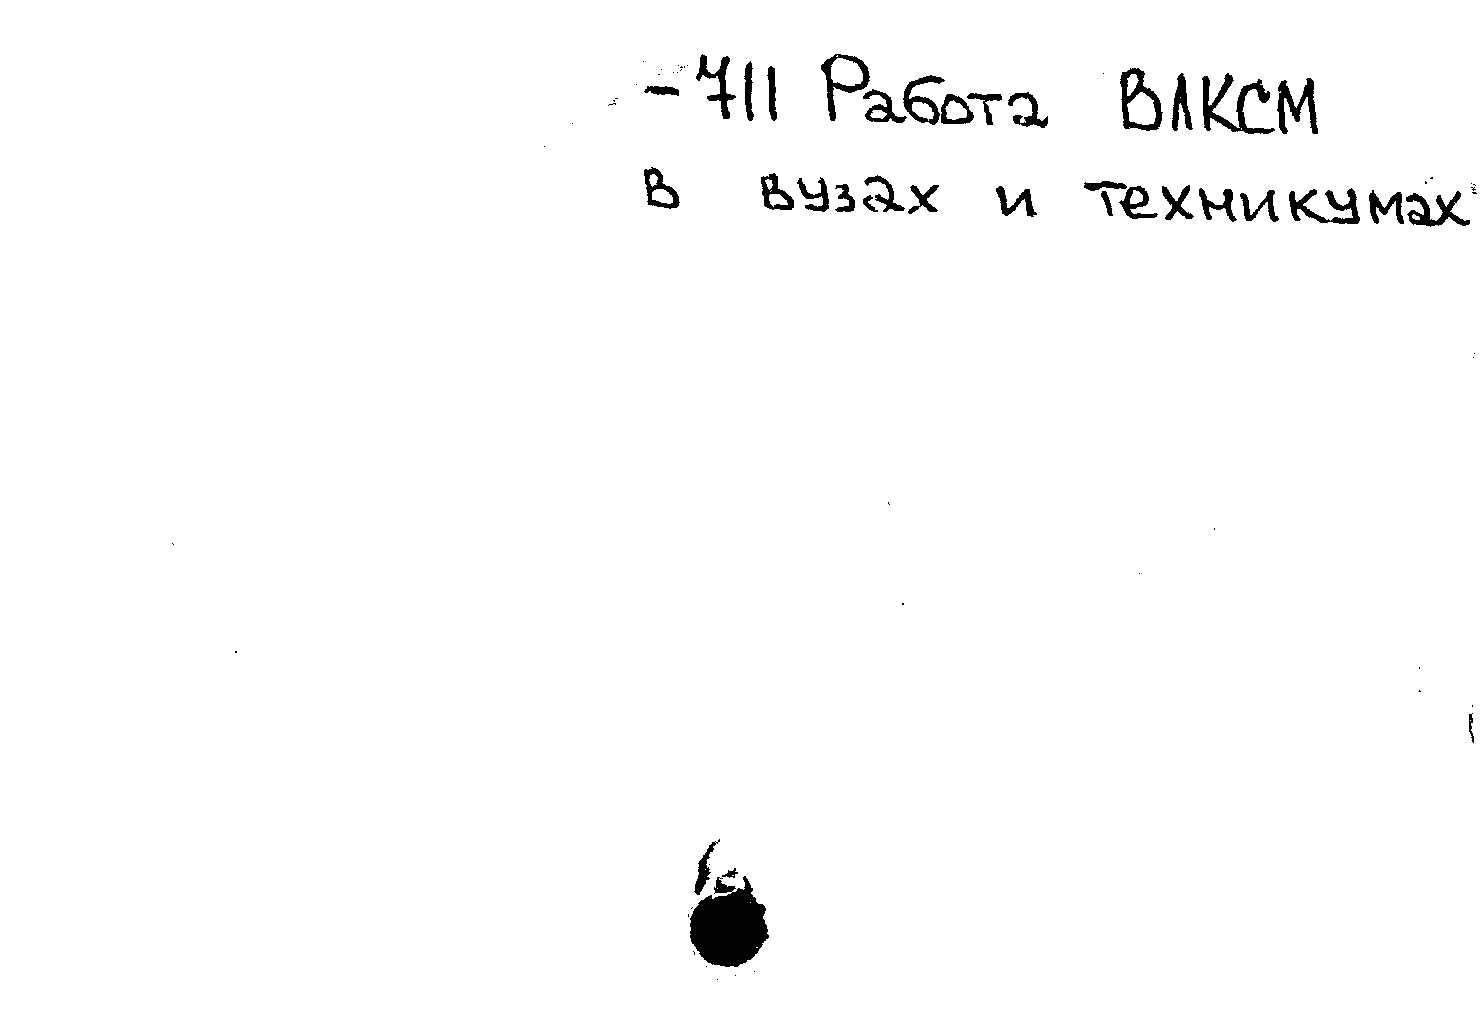 -711 Работа ВЛКСМ
в вузах и техникумах